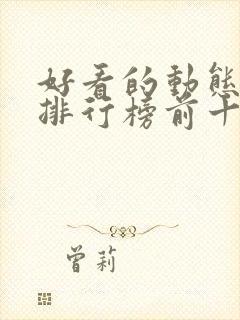 好看的動態
排行榜前十
曾莉